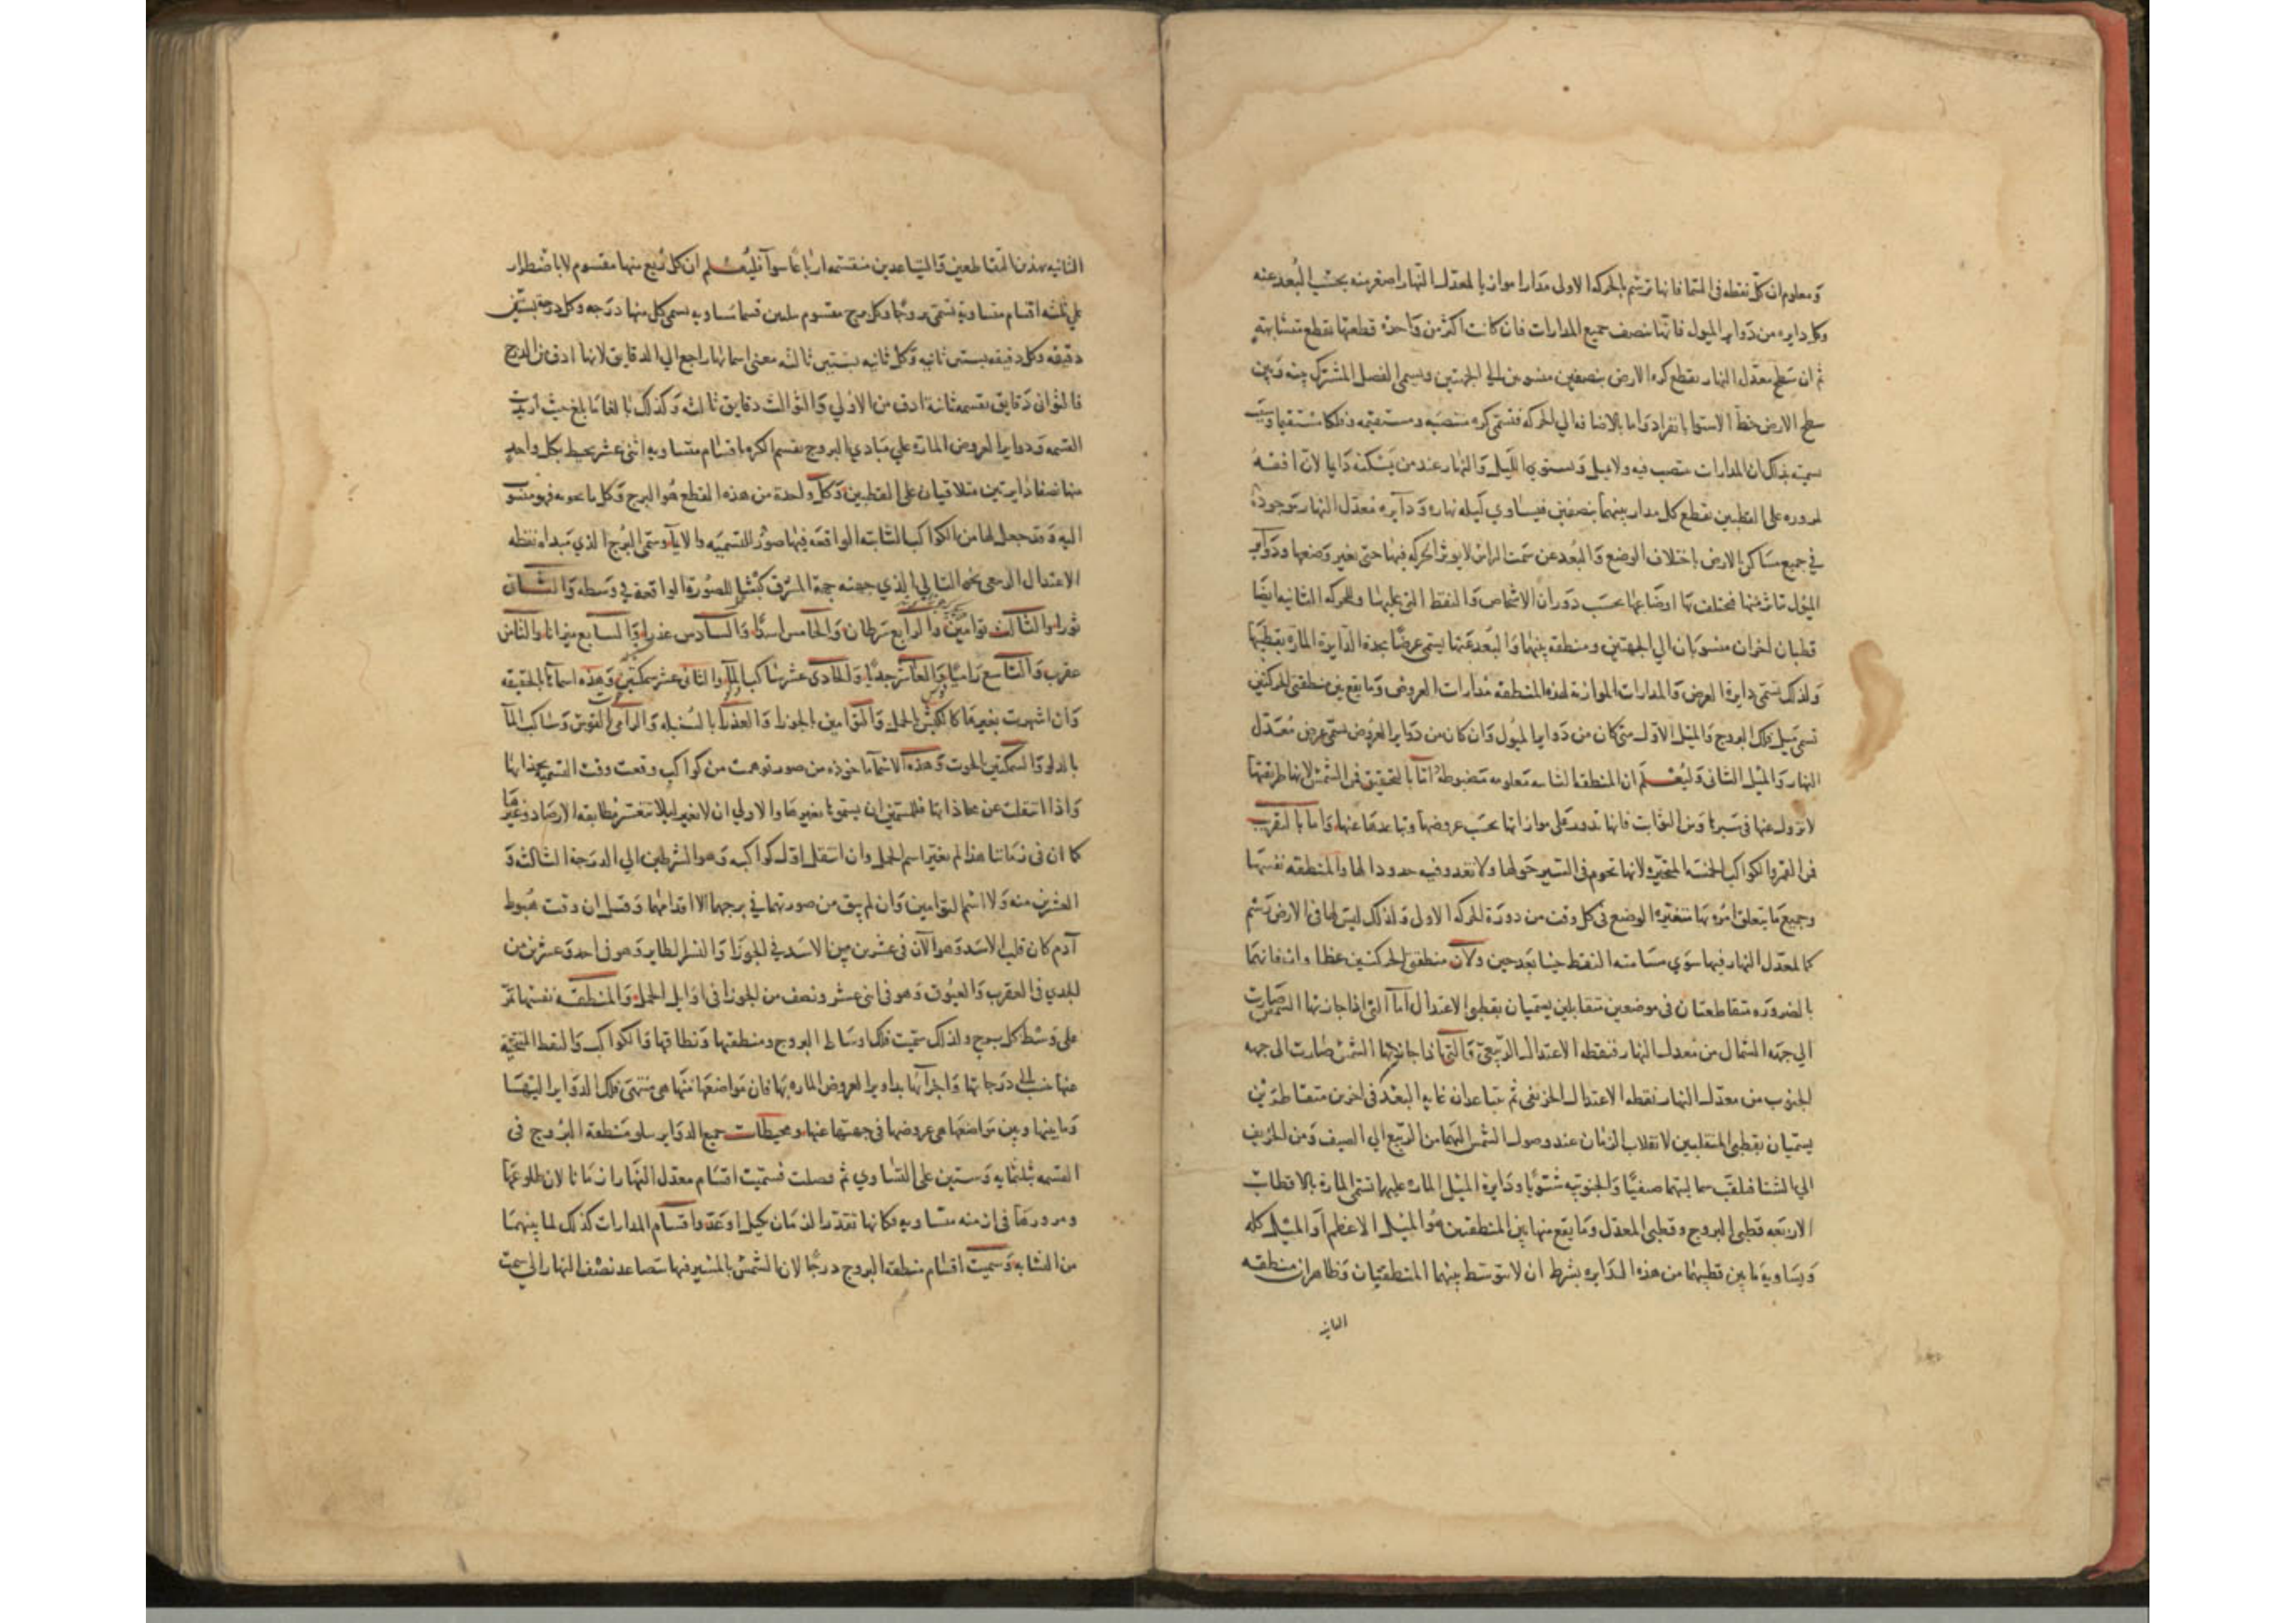 ومعلوم ان كل نقطه في السما فانها ترتسم بالحركه الاولى مدارا موازيا لمعدل النهار اصغر منه بحسب البعد عنه
وكل دايره من دواير الميول فانها تنصف جميع المدارات فان كانت اكثر من واحده قطعتها بقطع متشابهه
ثم ان سطح معدل النهار يقطع كره الارض بنصفين منسوبين الى الجهتين ويسمى الفصل المشترك بينه وبين
سطح الارض خط الاستوا بانفراد واما بالاضافه الي الحركه فتسمى كره منتصبه ومستقيمه وفلكا مستقيما وسبب
سميته بذلك ان المدارات تنتصب فيه ولا تميل ويستوي بها الليل والنهار عند من يسكنه دايما لان افقه
لمروره على القطبين يقطع كل مدار بينهما بنصفين فيساوي ليله نهاره ودايره معدل النهار موجودة
في جميع مساكن الارض باختلاف الوضع والبعد عن سمت الراس لا يوثر الحركه فيها حتى يغير وضعها ودواير
الميول تتاثر منها فيختلف بها اوضاعها بحسب دوران الاشخاص والنقط التي عليها وللحركه الثانيه ايضا
قطبان اخران منسوبان الي الجهتين ومنطقه بينهما والبعد عنها يسمى عرضا بحده الدايرة الماره بقطبيها
ولذلك تسمى دايرة العرض والمدارات الموازنه لهذه المنطقه مدارات العروض وما يقع بين منطقتي الحركتين
تسمى ميل فلك البروج والميل الاول متى كان من دواير الميول وان كان من دواير العروض تسمى عرض معدل
النهار والميل الثاني وليعلم ان المنطقه الثانيه معلومه مضبوطه اما بالتحقيق فمن الشمس لانها طريقتها
لا تزول عنها في سيرها ومن الثوابت فانها تدور على موازاتها بحسب عروضها وتباعدها عنها واما بالتقريب
فمن القمر والكواكب الخمسه المتحيره لانها تحوم في السير حولها ولا تعدو فيه حدودا لها والمنطقه نفسها
وجميع ما يتعلق امره بها متغيره الوضع في كل وقت من دورة الحركه الاولى ولذلك ليس لها في الارض رسم
كالمعدل النهار فيها سوي مسامته النقط حينا بعد حين ولان منطقتي الحركتين عظاوان فانهما
بالضروره متقاطعتان في موضعين متقابلين يسميان نقطتي الاعتدال اما التي اذا جازتها الشمس صارت
الي جهه الشمال من معدل النهار فنقطه الاعتدال الربيعي والتي اذا جازتها الشمس صارت الى جهه
الجنوب من معدل النهار نقطه الاعتدال الخريفي ثم يتباعدان غايه البعد في اخرين متقاطرين
يسميان نقطتي المنقلبين لانقلاب الزمان عند وصول الشمس اليهما من الربيع الي الصيف ومن الخريف
الي الشتا فيلقب شماليتهما صيفيا والجنوبيه شتويا ودايرة الميل الماره عليهما تسمى المارة بالاقطاب
الاربعه قطبي البروج وقطبي المعدل وما يقع منها بين المنطقتين هو الميل الاعظم او الميل كله
ويساويه ما بين قطبيهما من هذه الدايره بشرط ان لا يتوسط بينهما المنطقتان وظاهر ان منطقه
الثانيه
الثانيه بهذين التقاطعين والتباعدين منقسمه ارباعا سوآ فليعلم ان كل ربع منها مقسوم لا باضطرار
علي ثلثه اقسام متساويه تسمى بروجا وكل برج مقسوم بثلثين قسما متساويه يسمى كل منها درجه وكل درجه بستين
دقيقه وكل دقيقه بستين ثانيه وكل ثانيه بستين ثالثه معنى اسمائها راجع الي الدقايق لانها ادق من الدرج
فالثوان دقايق بقسمه ثانية ادق من الاولي والثوالث دقايق ثالثه وكذلك بالغا ما بلغ حيث اريدت
القسمه ودواير العروض الماره علي مبادي البروج يقسم الكره باقسام متساويه اثنى عشر يحيط بكل واحد
منها نصفا دايرتين متلاقيان على القطبين وكل واحدة من هذه القطع هو البرج وكل ما يحويه فهو منسوب
اليه وقد جعل لها من الكواكب الثابته الواقعه فيها صور للتسميه والا يآ وسمى البرج الذي مبداه نقطه
الاعتدال الربيعى نحو التالي الذي جهته جهة المشرق كبشا للصورة الواقعة في وسطه والثاني
ثورا والثالث توامين والرابع سرطان والخامس اسدا والسادس عذرا والسابع ميزانا والثامن
عقرب والتاسع راميا والعاشر جديا والحادي عشر ساكب الما والثاني عشر سمكتين وهذه اسماؤها الحقيقه
وان اشهرت بغيرها كالكبش بالحمل والتوامين بالجوزا والعذرا بالسنبله والرامي بالقوس وساكب المآ
بالدلو والسمكتين بالحوت وهذه الاسمآ ماخوذه من صور توهمت من كواكب وقعت وقت التسميه بحذائها
واذا انتقلت عن محاذاتها فللمسمين ان يسموها بغيرها والاولي ان لا تغير ليلا تتعسر مطابقه الارصاد وغيرها
كما ان في زماننا هذا لم يغير اسم الحمل وان انتقل اول كواكبه وهو الشرطين الي الدرجة الثالثه و
العشرين منه ولا اسم التوامين وان لم يبق من صورتهما في برجهما الا اقدامهما وقيل ان وقت هبوط
آدم كان قلب الاسد وهو الآن في عشرين من الاسد في الجوزا والنسر الطاير وهو في احد وعشرين من
الجدي في العقرب والعيوق وهو في اثنى عشر ونصف من الجوزا في اوايل الحمل والمنطقه نفسها تمر
على وسط كل برج ولذلك سميت فلك اوساط البروج ومنطقتها ونطاقها والكواكب والنقط المتنحيه
عنها تنسب الى درجاتها واجزآئها بدواير العروض الماره بها فان مواضعها منها هي منتهى تلك الدواير اليها
وما بينها وبين مواضعها هي عروضها في جهتها عنها ومحيطات جميع الدواير يتلو منطقه البروج في
القسمه بثلثمايه وستين على التساوي ثم فصلت فسميت اقسام معدل النهار ازمانا لان طلوعها
ومرورها في ازمنه متساويه فكانها تقدر الزمان بكيل او عدّ واقسام المدارات كذلك لما بينهما
من التشابه وسميت اقسام منطقه البروج درجا لان الشمس بالمسير فيها تتصاعد نصف النهار الي سمت